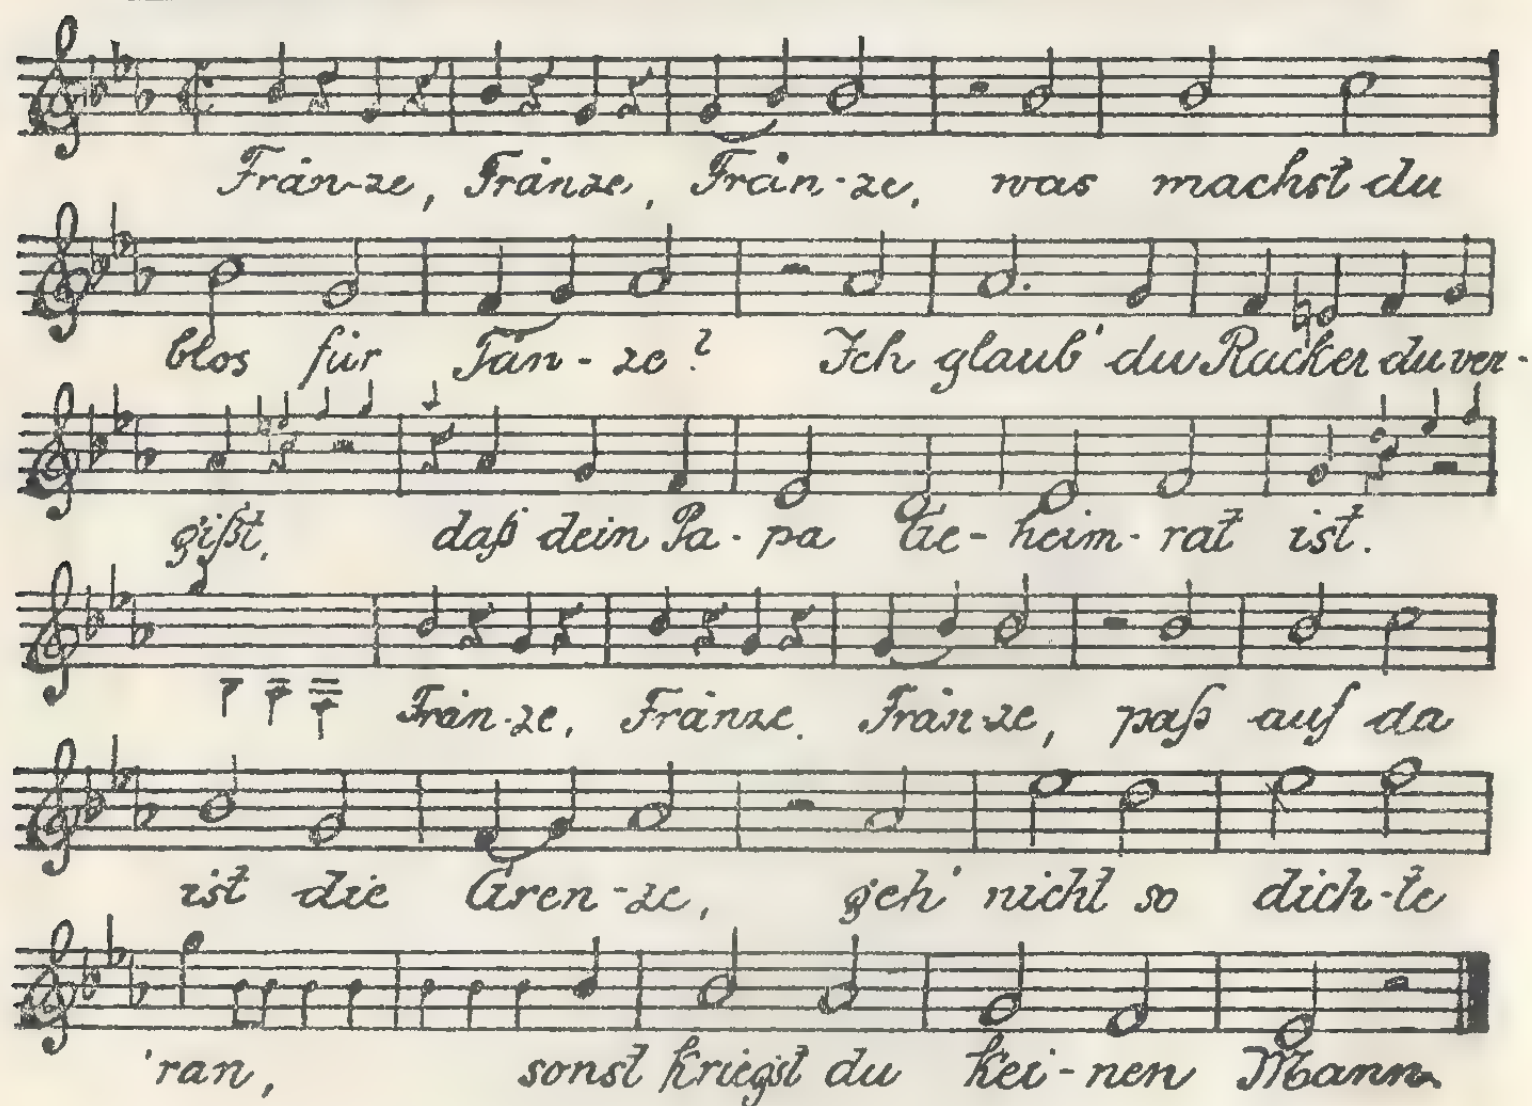 Frän-ze, Fränze, Frän-ze, was machst du
blos für Tän-ze? Ich glaub' du Racker du ver-
gißt, daß dein Pa-pa Ge-heim-rat ist.
Frän-ze, Fränze. Frän-ze, paß auf da
ist die Gren-ze, geh' nicht so dich-te
'ran, sonst kriegst du kei-nen Mann